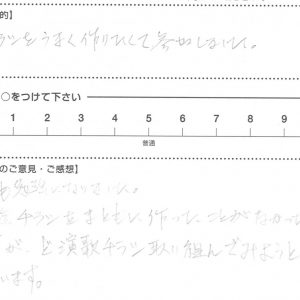 的】
チラシをうまく作りたくて参加しました。
○をつけて下さい
1 2 3 4 5 6 7 8 9
普通
のご意見・ご感想】
も勉強になりました。
チラシをまともに作ったことがなかった
が、ど演歌チラシ取り組んでみようと
います。